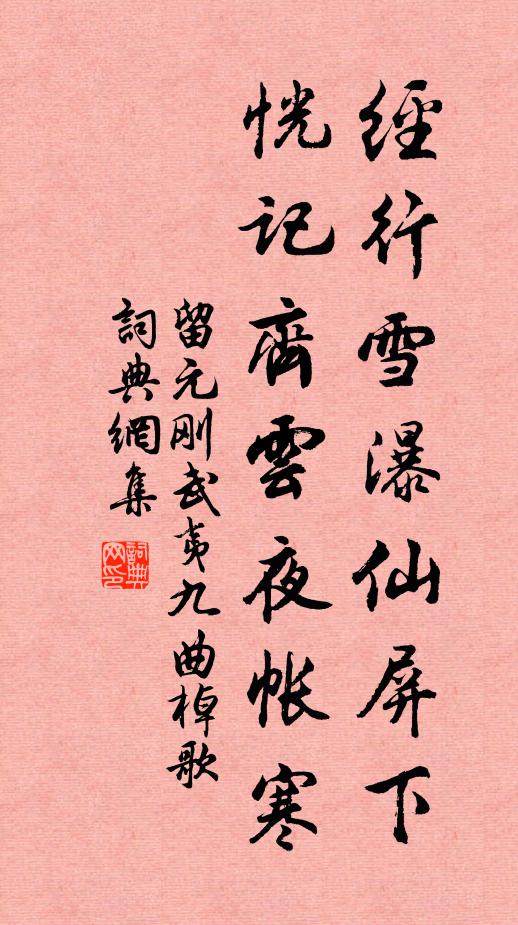 經行雪瀑仙屏下
恍記齊雲夜帳寒
留元刚武夷九曲棹歌
詞典網集
詞典网印